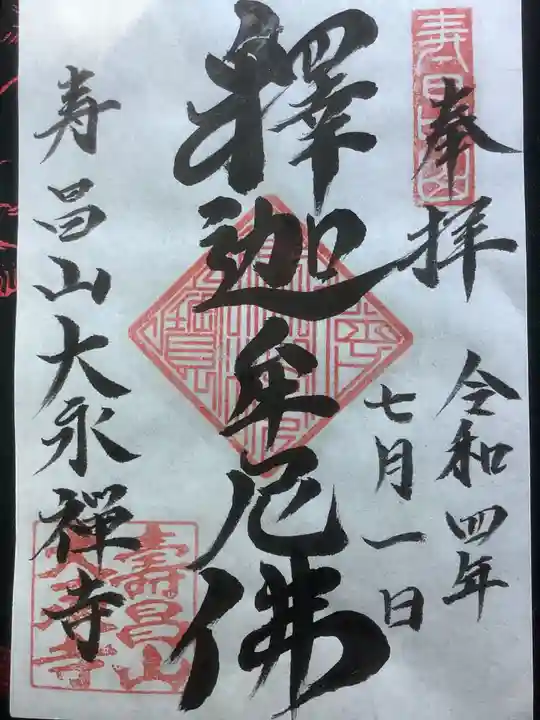 奉拝
令和四年
七月一日
釋迦牟尼佛
寿昌山大永禅寺
壽昌山